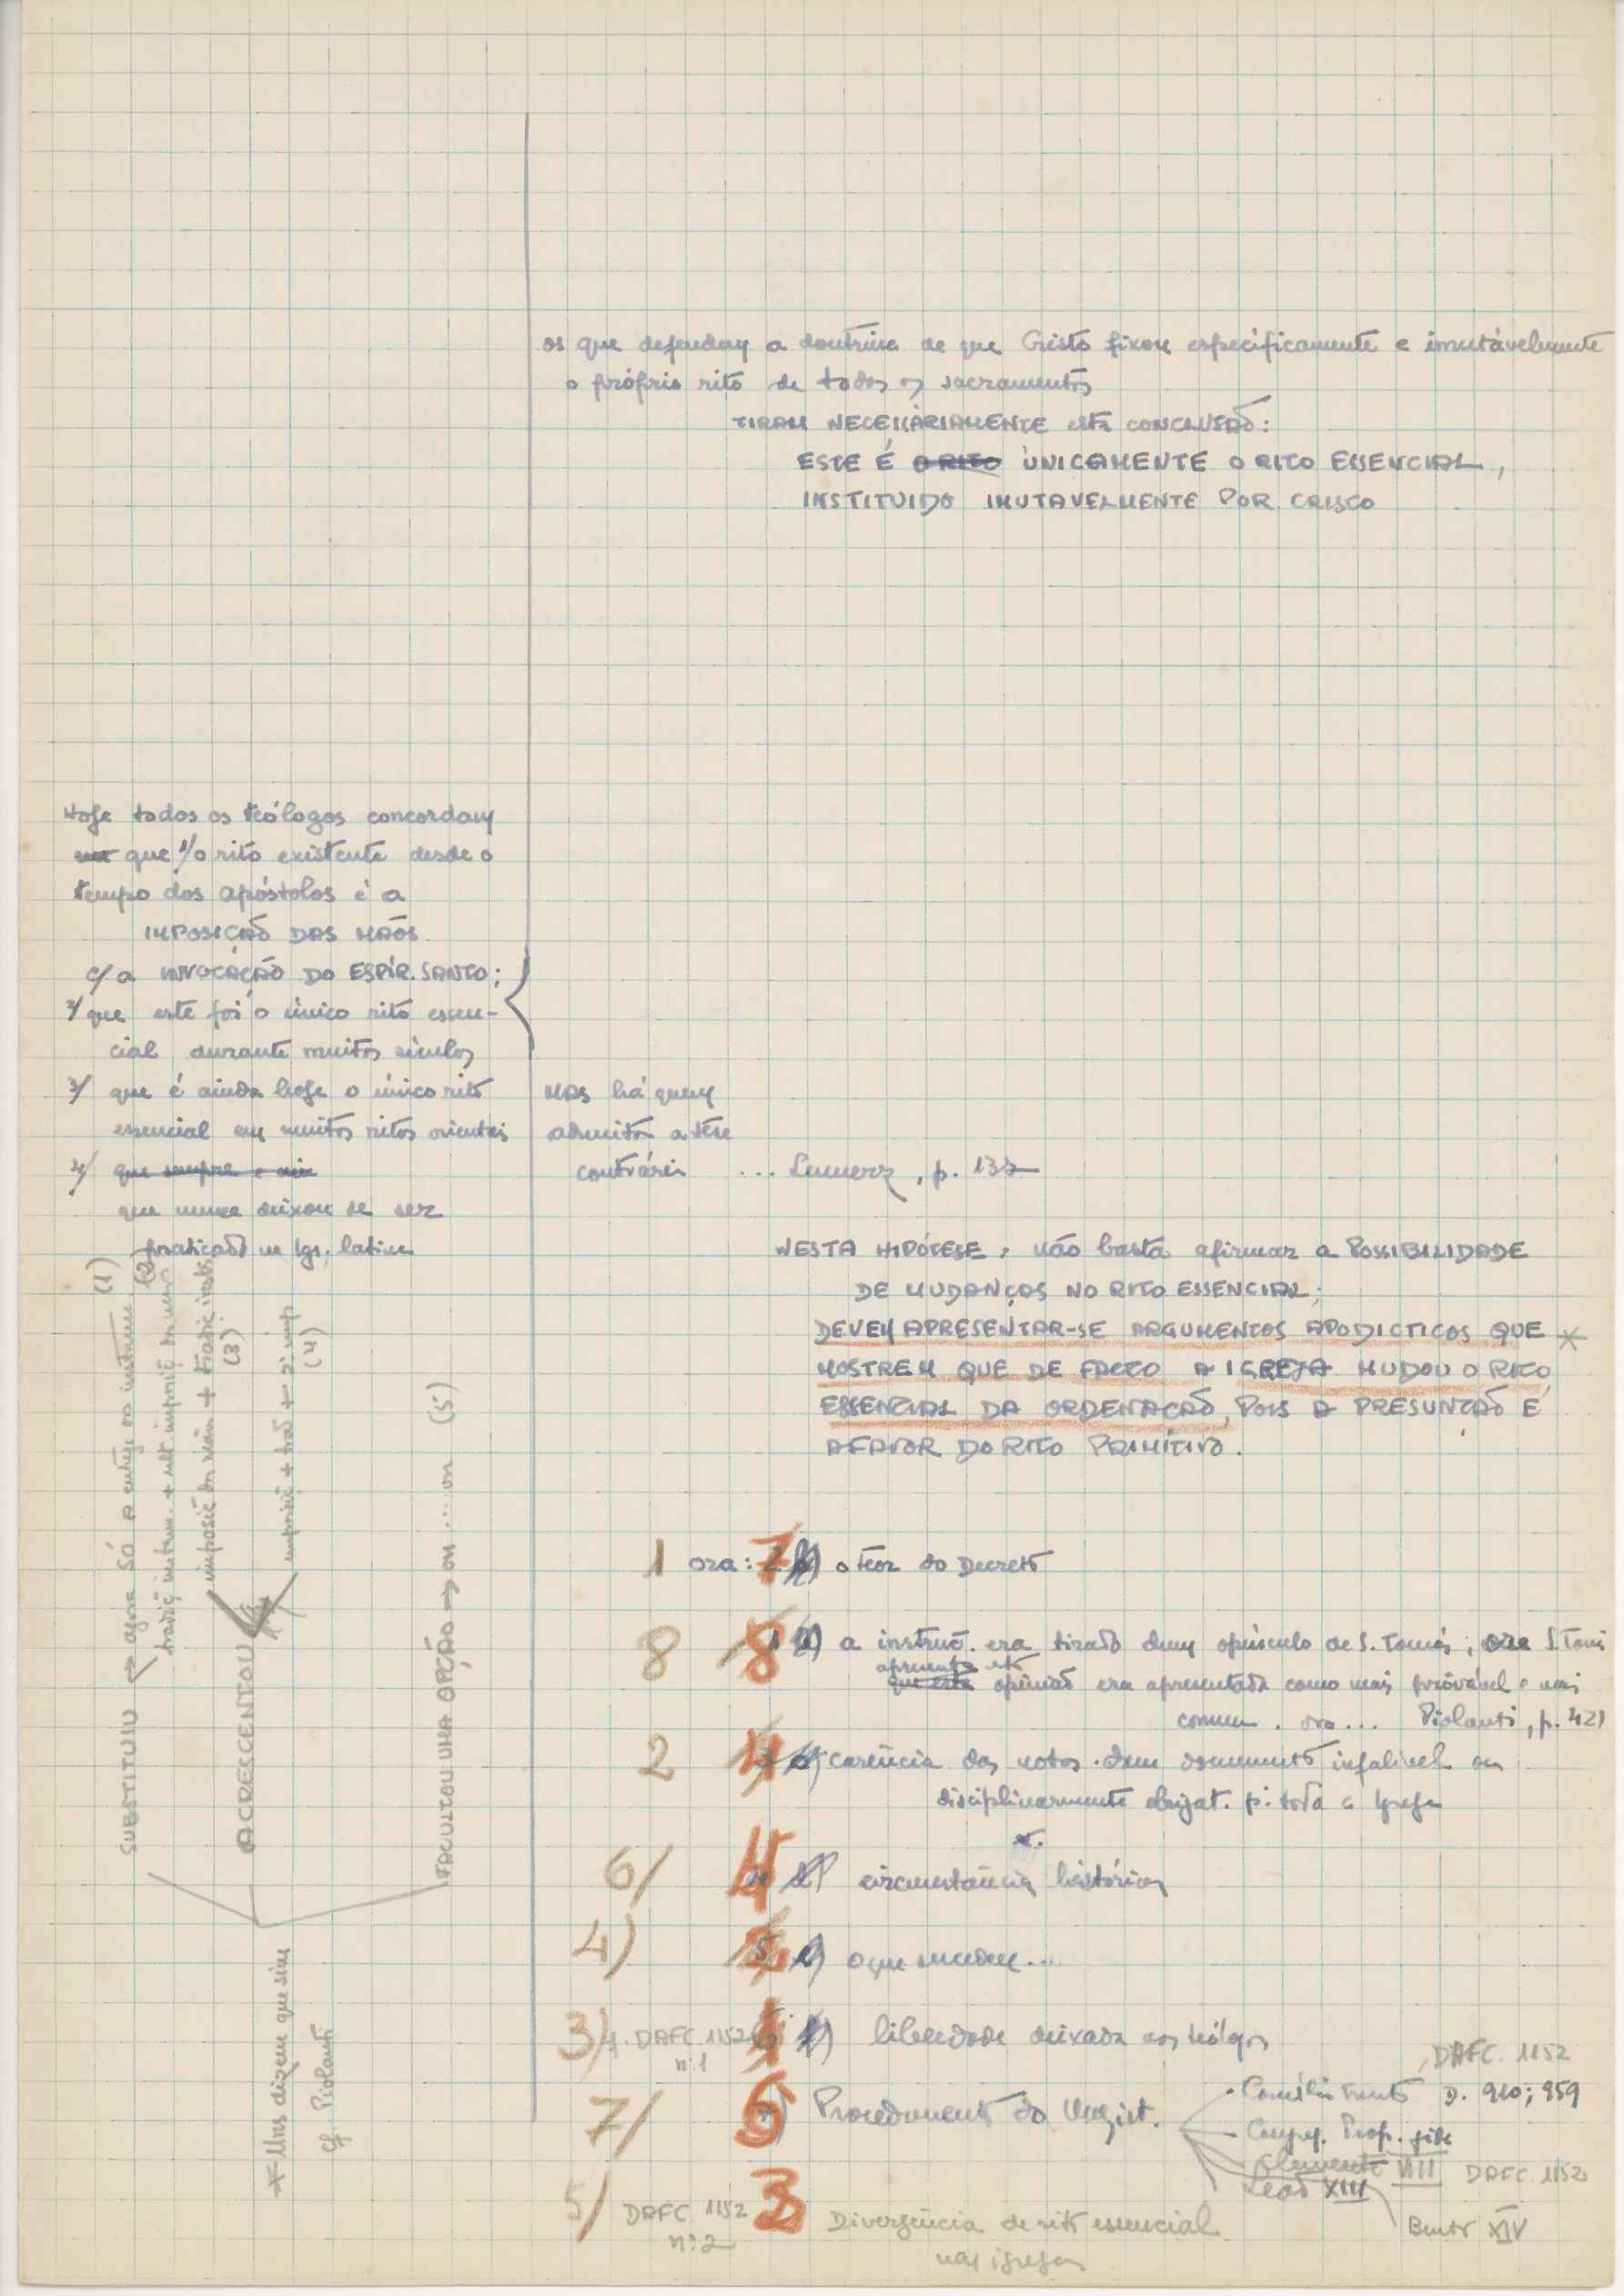 os que defendem a doutrina de que Cristo fixou especificamente e imutávelmente
o próprio rito de todos os sacramentos
TIRAM NECESSÀRIAMENTE esta CONCLUSÃO:
ESTE É O RITO ÙNICAMENTE O RITO ESSENCIAL,
INSTITUIDO IMUTAVELMENTE POR CRISTO
Hoje todos os teólogos concordam
que 1/ o rito existente desde o
tempo dos apóstolos é a
IMPOSIÇÃO DAS MÃOS
c/ a INVOCAÇÃO DO ESPÍR. SANTO;
2/ que este foi o único rito essen-
cial durante muitos séculos
3/ que é ainda hoje o único rito
essencial em muitos ritos orientais
4/ que sempre e
que nunca deixou de ser
praticado na Igr. latina
MAS há quem
admita a tese
contrária ... Lennerz, p. 132
NESTA HIPÓTESE, não basta afirmar a POSSIBILIDADE
DE MUDANÇAS NO RITO ESSENCIAL;
DEVEM APRESENTAR-SE ARGUMENTOS APODICTICOS QUE *
MOSTREM QUE DE FACTO A IGREJA MUDOU O RITO
ESSENCIAL DA ORDENAÇÃO, POIS A PRESUNÇÃO É
A FAVOR DO RITO PRIMITIVO.
SUBSTITUIU → agora SÓ A entrega dos instrum. (1)
tradiç instrum. + ult imposiç manus (2)
ACRESCENTOU
imposiç das mãos + tradiç instr (3)
imposiç + trad + 2ª imp (4)
FACULTOU UMA OPÇÃO → ou .... ou (5)
* Uns dizem que sim
cf. Piolanti
1 ora: 7 o teor do Decreto
8 8 a instruç. era tirada dum opúsculo de S. Tomás; ora S. Tom
apresenta esta
que esta opinião era apresentada como mais provável e mais
comum. ora... Piolanti, p. 421
2 4 carência das notas dum documento infalivel ou
disciplinarmente obrigat. p. toda a Igreja
6/ circunstâncias históricas
4) o que sucedeu...
3) cf. DAFC 1152 liberdade deixada aos teólogos
n:1
7/ 6 Procedimento do Magist.
DAFC. 1152
Concílio Trento D. 910; 959
Congreg. Prop. fide
Clemente VIII DAFC 1152
Leão XIII
Bento XIV
5/ DAFC 1152 3 Divergência de rito essencial
n:2
nas igrejas